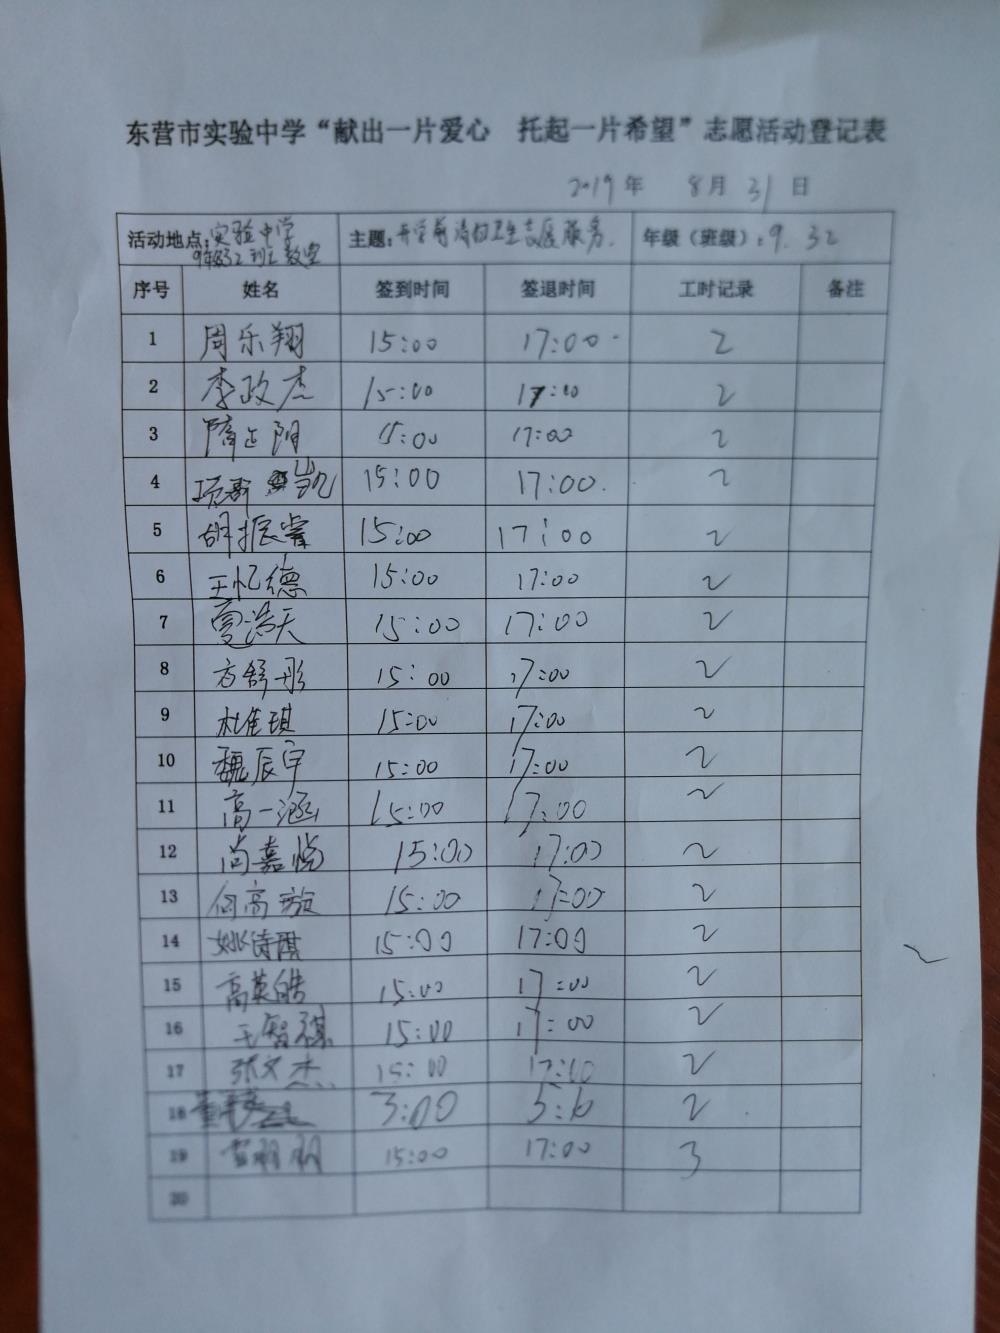 东营市实验中学“献出一片爱心 托起一片希望”志愿活动登记表
2019年 8月 31日
活动地点：实验中学 主题：开学前清扫卫生志愿服务. 年级（班级）：9.32
9年级32班教室
序号 姓名 签到时间 签退时间 工时记录 备注
1 周乐翔 15:00 17:00 2
2 李政杰 15:00 17:00 2
3 隋正阳 15:00 17:00 2
4 凯 15:00 17:00. 2
5 胡振睿 15:00 17:00 2
6 王忆德 15:00 17:00 2
7 夏浩天 15:00 17:00 2
8 方舒彤 15:00 17:00 2
9 杜佳琪 15:00 17:00 2
10 魏辰宇 15:00 17:00 2
11 高一涵 15:00 17:00 2
12 尚嘉悦 15:00 17:00 2
13 何高璇 15:00 17:00 2
14 姚诗琪 15:00 17:00 2
15 高英皓 15:00 17:00 2
16 王智祺 15:00 17:00 2
17 张文杰 15:00 17:00 2
18 3:00 2
19 15:00 17:00 3
20